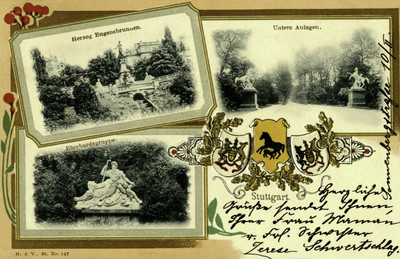 Herzog Eugensbrunnen.
Untere Anlagen.
Eberhardsgruppe
Stuttgart.
Herzliche
Grüße sendet Ihnen,
Ihrer Frau Maman
u. Frl. Schwester
Terese Schwertschlag.
H. & V., St. No. 147